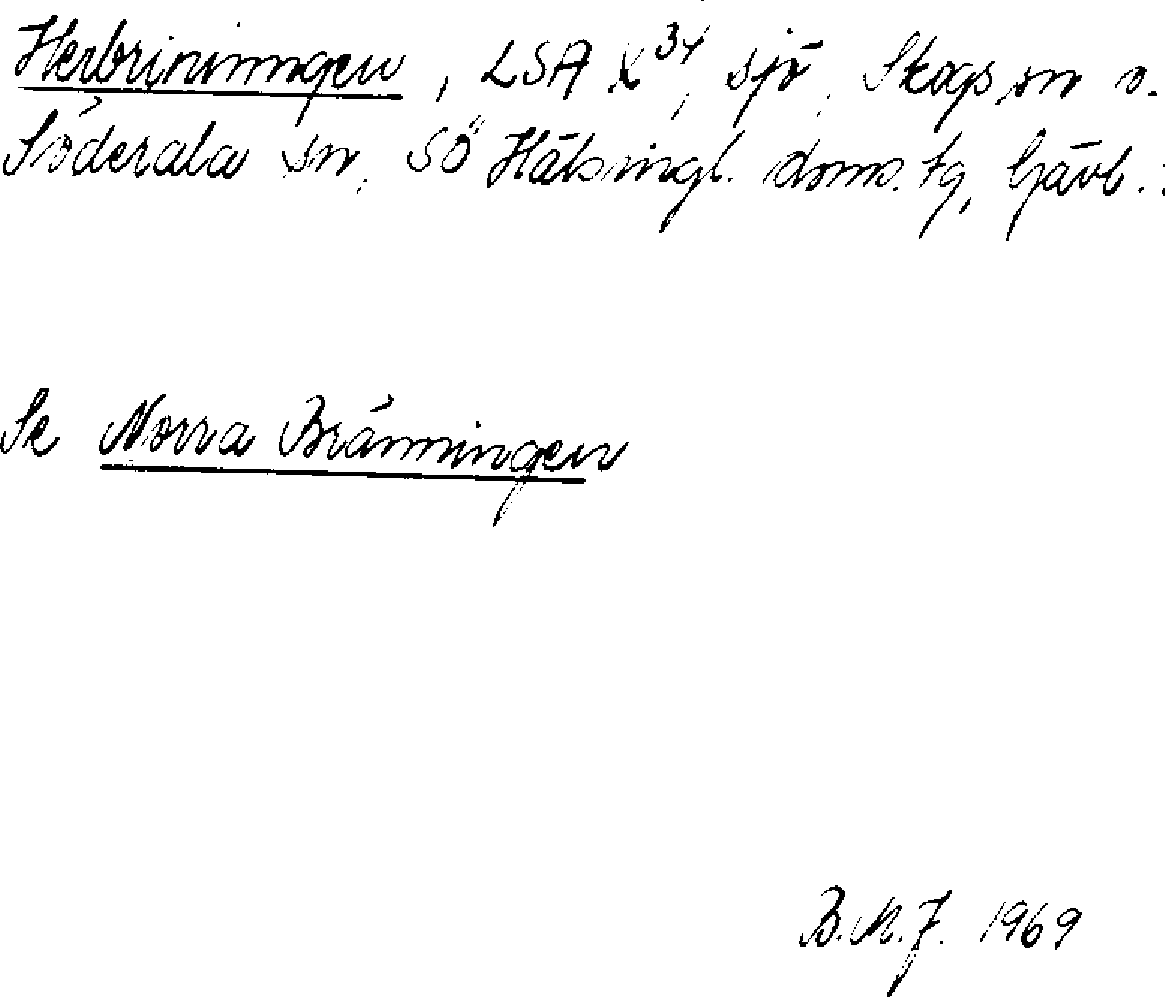 Herbrinimngen, LSA X34, sjö, Skogs sn o.
Söderala sn, SÖ Hälsingl. doms. tg, Gävl.
Se Norra Bränningen
B.M.J. 1969